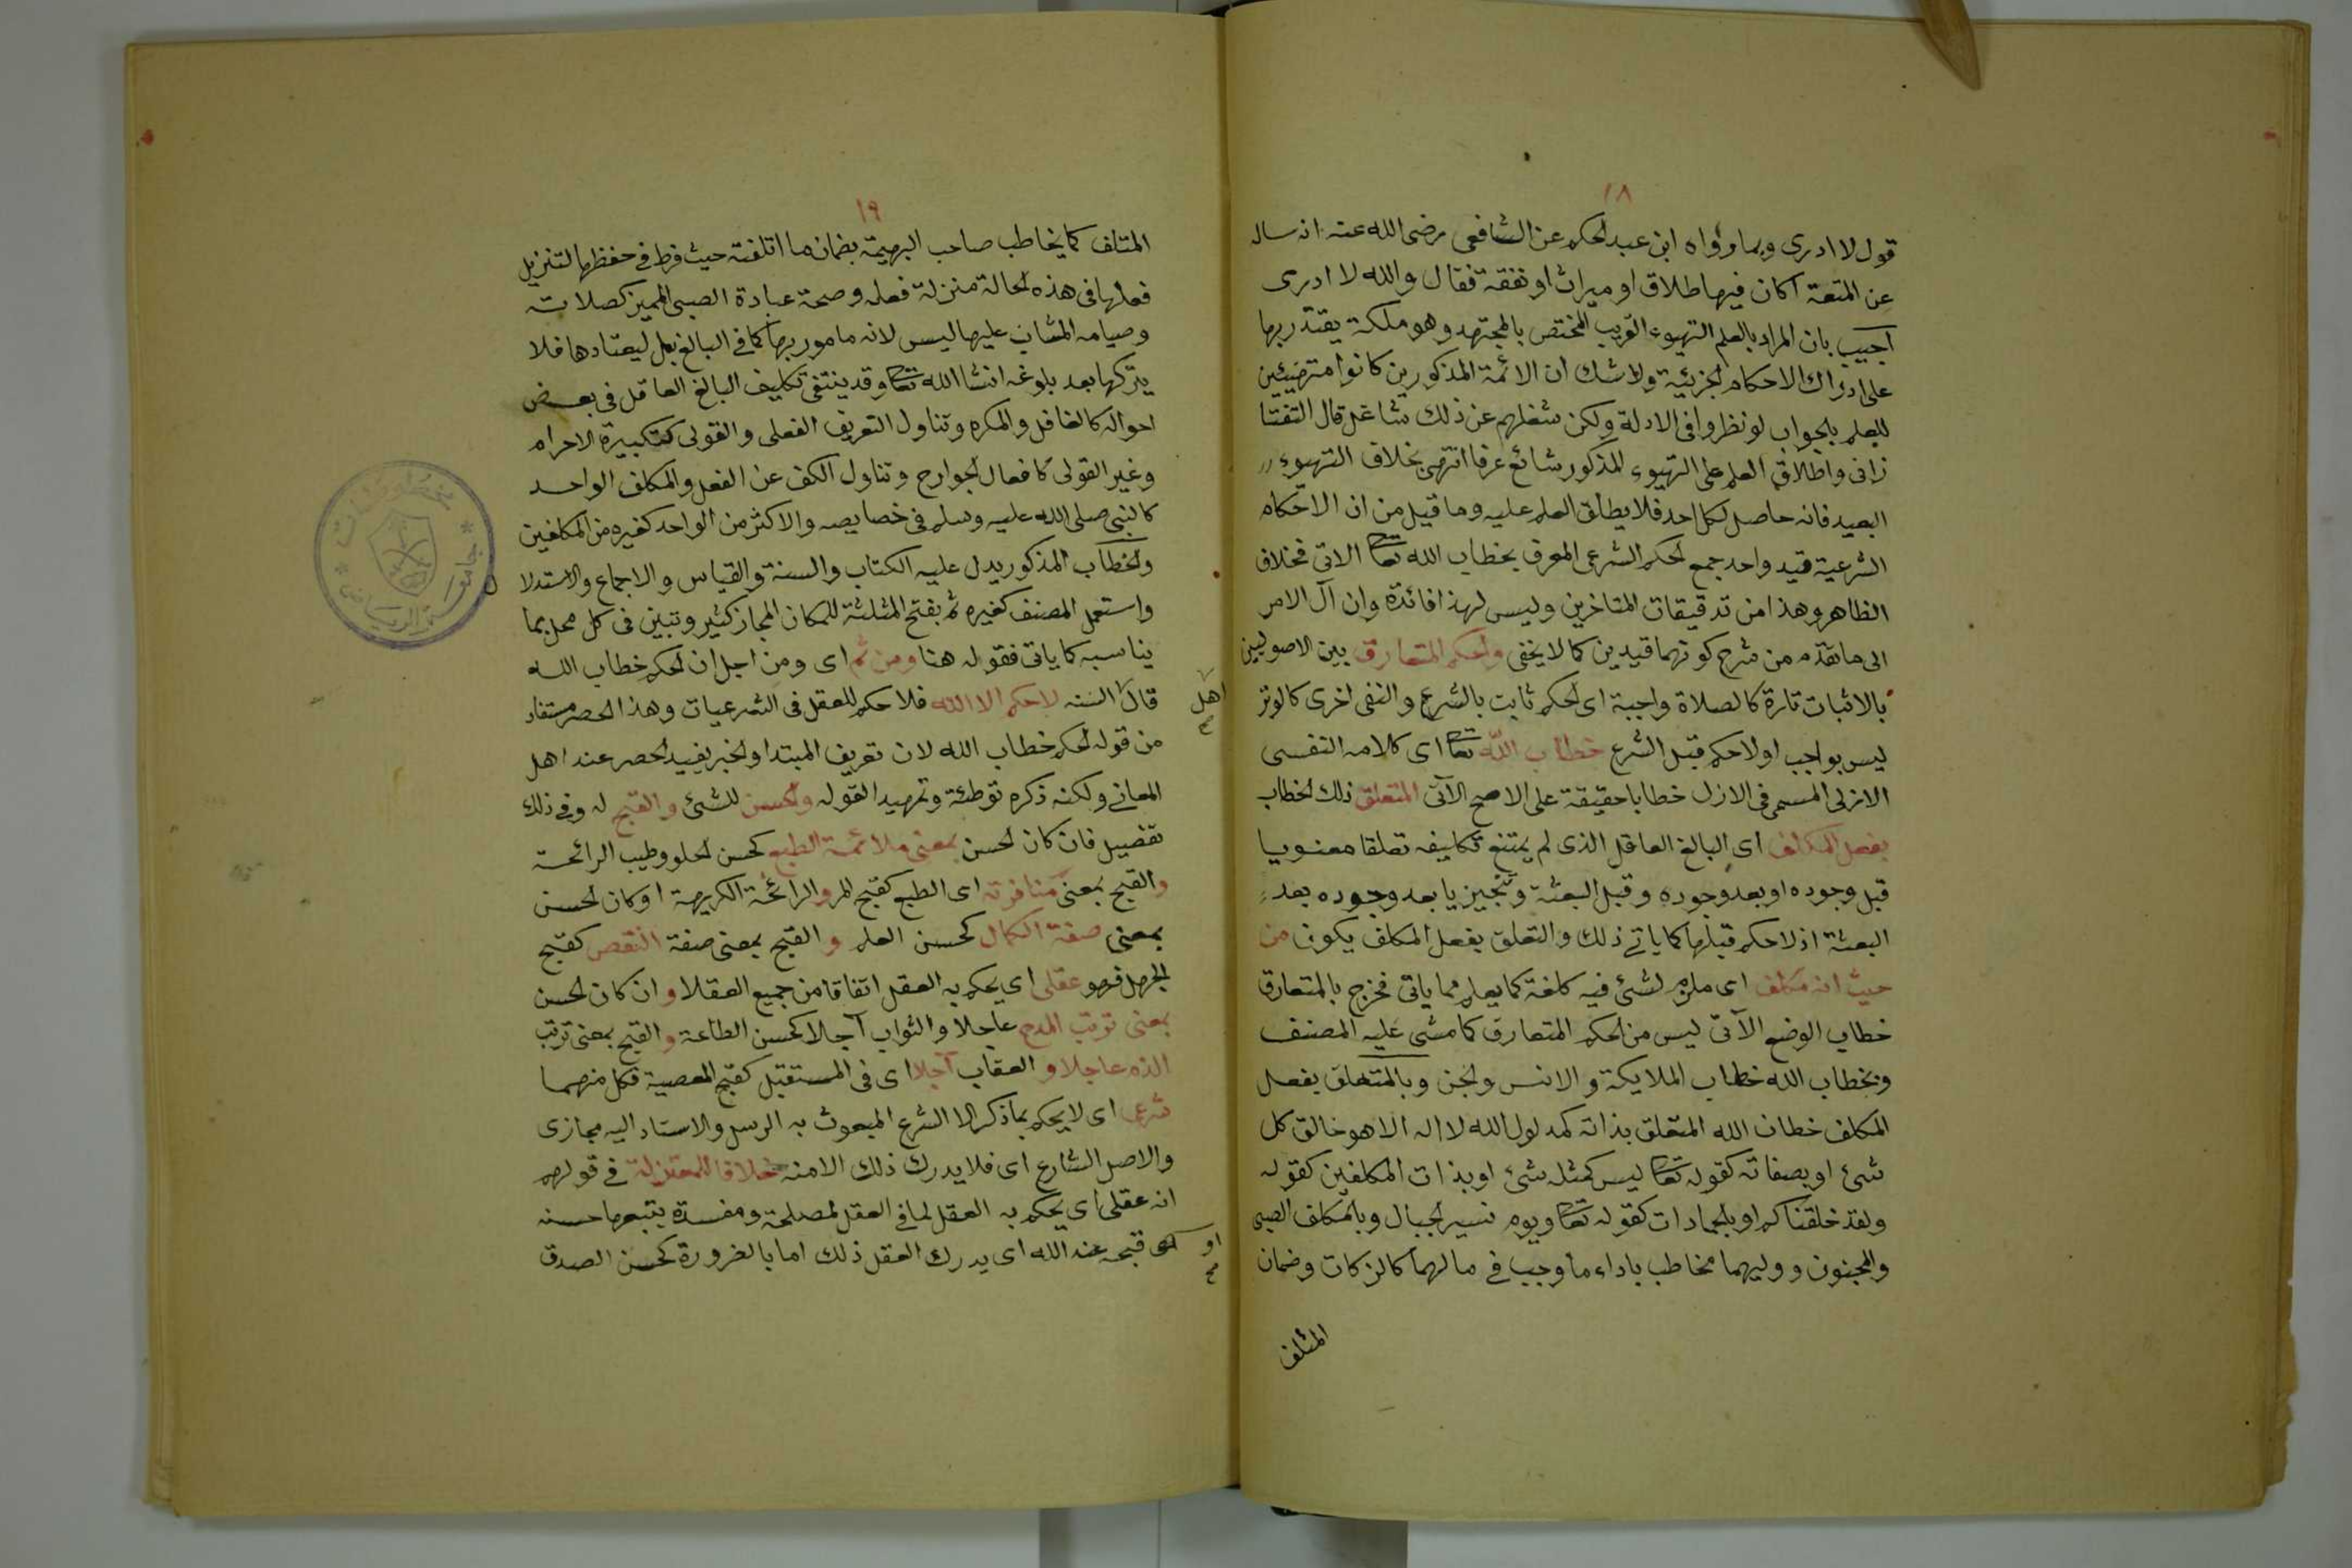 ١٨
قول لا ادرى وبما رواه ابن عبد الحكم عن الشافعى رضى الله عنه انه سال
عن المتعة اكان فيها طلاق او ميراث او نفقة فقال والله لا ادرى
اجيب بان المراد بالعلم التهيوء القريب المختص بالمجتهد وهو ملكة يقتدر بها
على ادراك الاحكام الجزئية ولاشك ان الائمة المذكورين كانوا متهيئين
للعلم بالجواب لو نظروا فى الادلة ولكن شغلهم عن ذلك شاغل قال التفتا
زانى واطلاق العلم على التهيوء المذكور شائع عرفا انتهى بخلاف التهيوء
البعيد فانه حاصل لكل احد فلا يطلق العلم عليه وما قيل من ان الاحكام
الشرعية قيد واحد جمع الحكم الشرعى المعرف بخطاب الله تعا الاتى فخلاف
الظاهر وهذا من تدقيقات المتاخرين وليس لهذا فائدة وان آل الامر
الى ما تقدم من شرح كونهما قيدين كما لا يخفى والحكم المتعارف بين الاصوليين
بالاثبات تارة كالصلاة واجبة اى الحكم ثابت بالشرع والنفى اخرى كالوتر
ليس بواجب او لا حكم قبل الشرع خطاب الله تعا اى كلامه النفسى
الازلى المسمى فى الازل خطابا حقيقة على الاصح الآتى المتعلق ذلك الخطاب
بفعل المكلف اى البالغ العاقل الذى لم يمتنع تكليفه تعلقا معنويا
قبل وجوده او بعد وجوده وقبل البعثة وتنجيزيا بعد وجوده بعد
البعثة اذ لا حكم قبلها كما ياتى ذلك والتعلق بفعل المكلف يكون من
حيث انه مكلف اى ملزم لشئ فيه كلفة كما يعلم مما ياتى فخرج بالمتعارف
خطاب الوضع الآتى ليس من الحكم المتعارف كما مشى عليه المصنف
وبخطاب الله خطاب الملايكة والانس والجن وبالمتعلق بفعل
المكلف خطاب الله المتعلق بذاته كمدلول الله لا اله الا هو خالق كل
شئ او بصفاته كقوله تعا ليس كمثله شئ او بذات المكلفين كقوله
ولقد خلقناكم او بالجمادات كقوله تعا ويوم نسير الجبال وبالمكلف الصبى
والمجنون ووليهما مخاطب باداء ما وجب فى مالهما كالزكات وضمان
المتلف
١٩
المتلف كما يخاطب صاحب البهيمة بضمان ما اتلفته حيث فرط فى حفظها لتنزيل
فعلها فى هذه الحالة منزلة فعله وصحة عبادة الصبى المميز كصلاته
وصيامه المثاب عليها ليس لانه مامور بها كما فى البالغ بل ليعتادها فلا
يتركها بعد بلوغه انشا الله تعا وقد ينتفى تكليف البالغ العاقل فى بعض
احواله كالغافل والمكره وتناول التعريف الفعلى والقولى كتكبيرة الاحرام
وغير القولى كافعال الجوارح وتناول الكف عن الفعل والمكلف الواحد
كالنبى صلى الله عليه وسلم فى خصايصه والاكثر من الواحد كغيره من المكلفين
والخطاب المذكور يدل عليه الكتاب والسنة والقياس والاجماع والاستدلال
واستعمل المصنف كغيره ثم بفتح المثلثة للمكان المجاز كثير وتبين فى كل محل بما
يناسبه كما ياتى فقوله هنا ومن ثم اى ومن اجل ان الحكم خطاب الله
قال اهل السنه لا حكم الا الله فلا حكم للعقل فى الشرعيات وهذا الحصر مستفاد
من قوله الحكم خطاب الله لان تعريف المبتدا والخبر يفيد الحصر عند اهل
المعانى ولكنه ذكره توطئة وتمهيدا لقوله والحسن للشئ والقبح له وفى ذلك
تفصيل فان كان الحسن بمعنى ملائمة الطبع كحسن الحلو وطيب الرائحة
والقبح بمعنى منافرته اى الطبع كقبح المر والرائحة الكريهة او كان الحسن
بمعنى صفة الكمال كحسن العلم والقبح بمعنى صفة النقص كقبح
الجهل فهو عقلى اى يحكم به العقل اتفاقا من جميع العقلا وان كان الحسن
بمعنى ترتب المدح عاجلا والثواب آجلا كحسن الطاعة والقبح بمعنى ترتب
الذم عاجلا والعقاب آجلا اى فى المستقبل كقبح المعصية فكل منهما
شرعى اى لا يحكم بما ذكر الا الشرع المبعوث به الرسل والاسناد اليه مجازى
والاصل الشارع اى فلا يدرك ذلك الا منه خلافا للمعتزلة فى قولهم
انه عقلى اى يحكم به العقل لما فى العقل لمصلحة ومفسدة يتبعها حسنه
او قبحه عند الله اى يدرك العقل ذلك اما بالضرورة كحسن الصدق